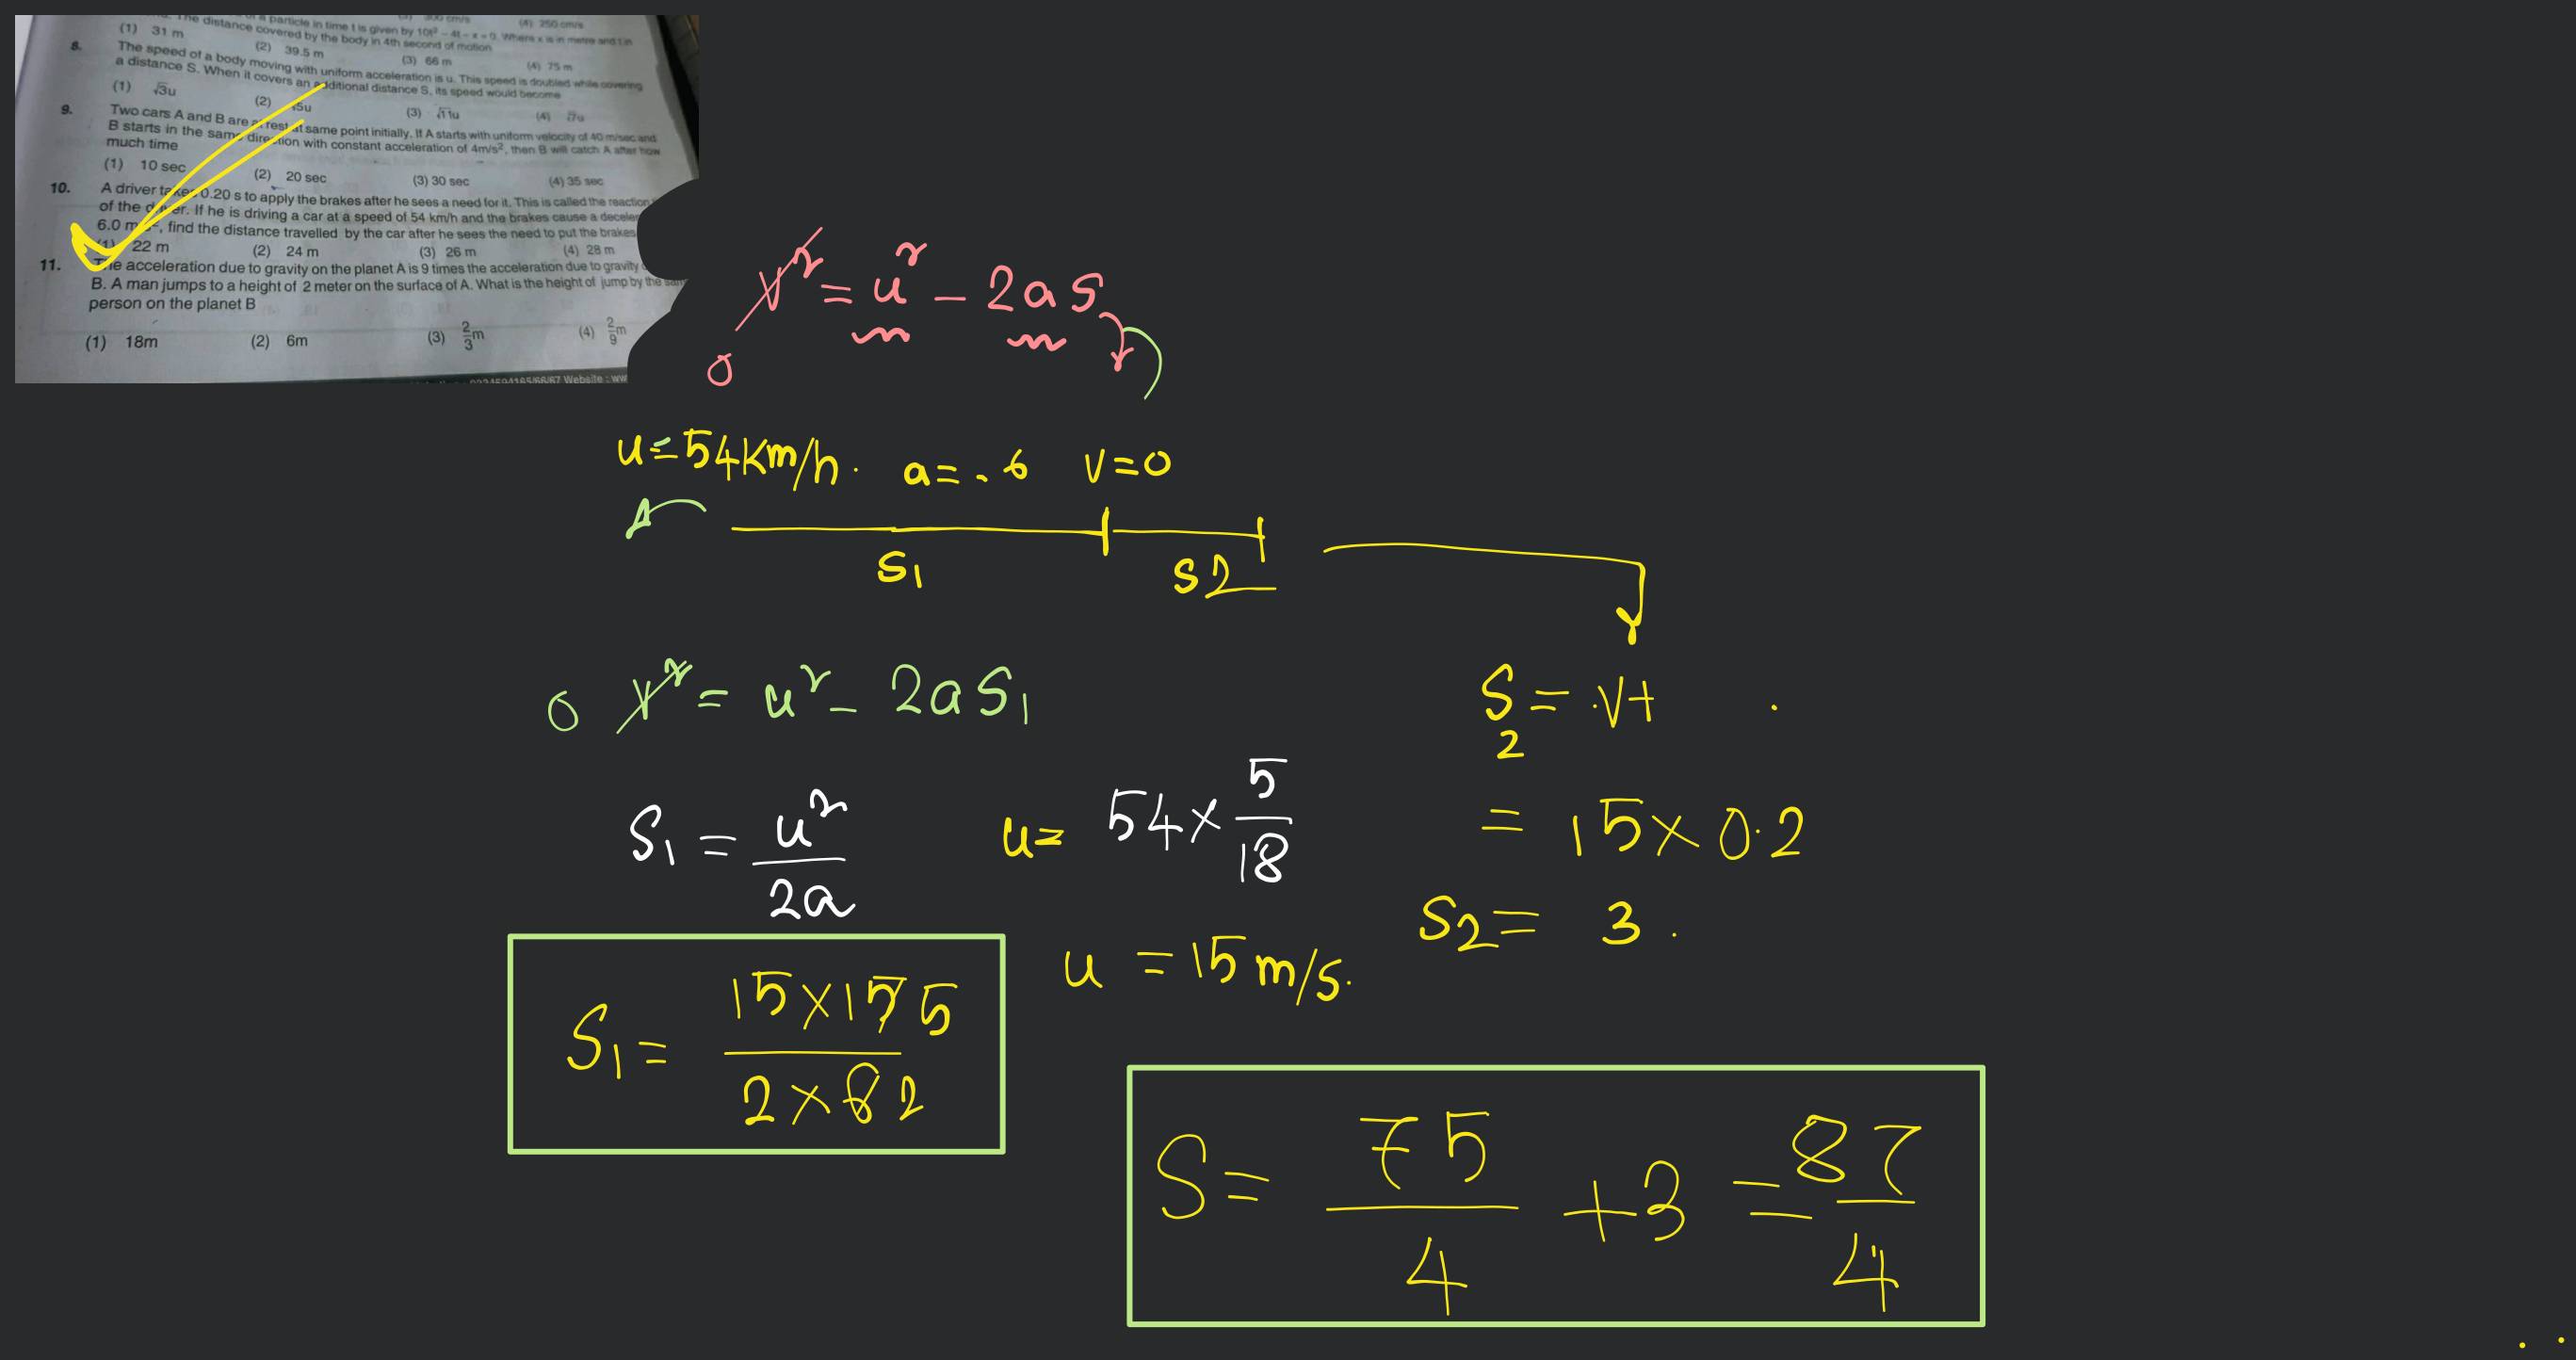 The distance covered by the body in 4th second of motion
(1) 31 m (2) 39.5 m (3) 66 m (4) 75 m
8. The speed of a body moving with uniform acceleration is u. This speed is doubled while covering
a distance S. When it covers an additional distance S, its speed would become
(1) √3u (2) √5u (3) √11u (4) √7u
9. Two cars A and B are at rest at same point initially. If A starts with uniform velocity of 40 m/sec and
B starts in the same direction with constant acceleration of 4m/s², then B will catch A after how
much time
(1) 10 sec (2) 20 sec (3) 30 sec (4) 35 sec
10. A driver takes 0.20 s to apply the brakes after he sees a need for it. This is called the reaction
of the driver. If he is driving a car at a speed of 54 km/h and the brakes cause a
6.0 find the distance travelled by the car after he sees the need to put the brakes
(1) 22 m (2) 24 m (3) 26 m (4) 28 m
11. The acceleration due to gravity on the planet A is 9 times the acceleration due to gravity
B. A man jumps to a height of 2 meter on the surface of A. What is the height of jump by the
person on the planet B
(1) 18m (2) 6m (3) 2/3 m (4) 2/9 m
v² = u² - 2as
0
u=54km/h. a=-6 v=0
A
S1 S2
0 v² = u² - 2aS1
S2 = vt
S1 = u²/2a
u= 54×5/18
= 15×0.2
u = 15 m/s.
S2= 3.
S1= 15×15 5/2×6 2
S= 75/4 +3 = 87/4